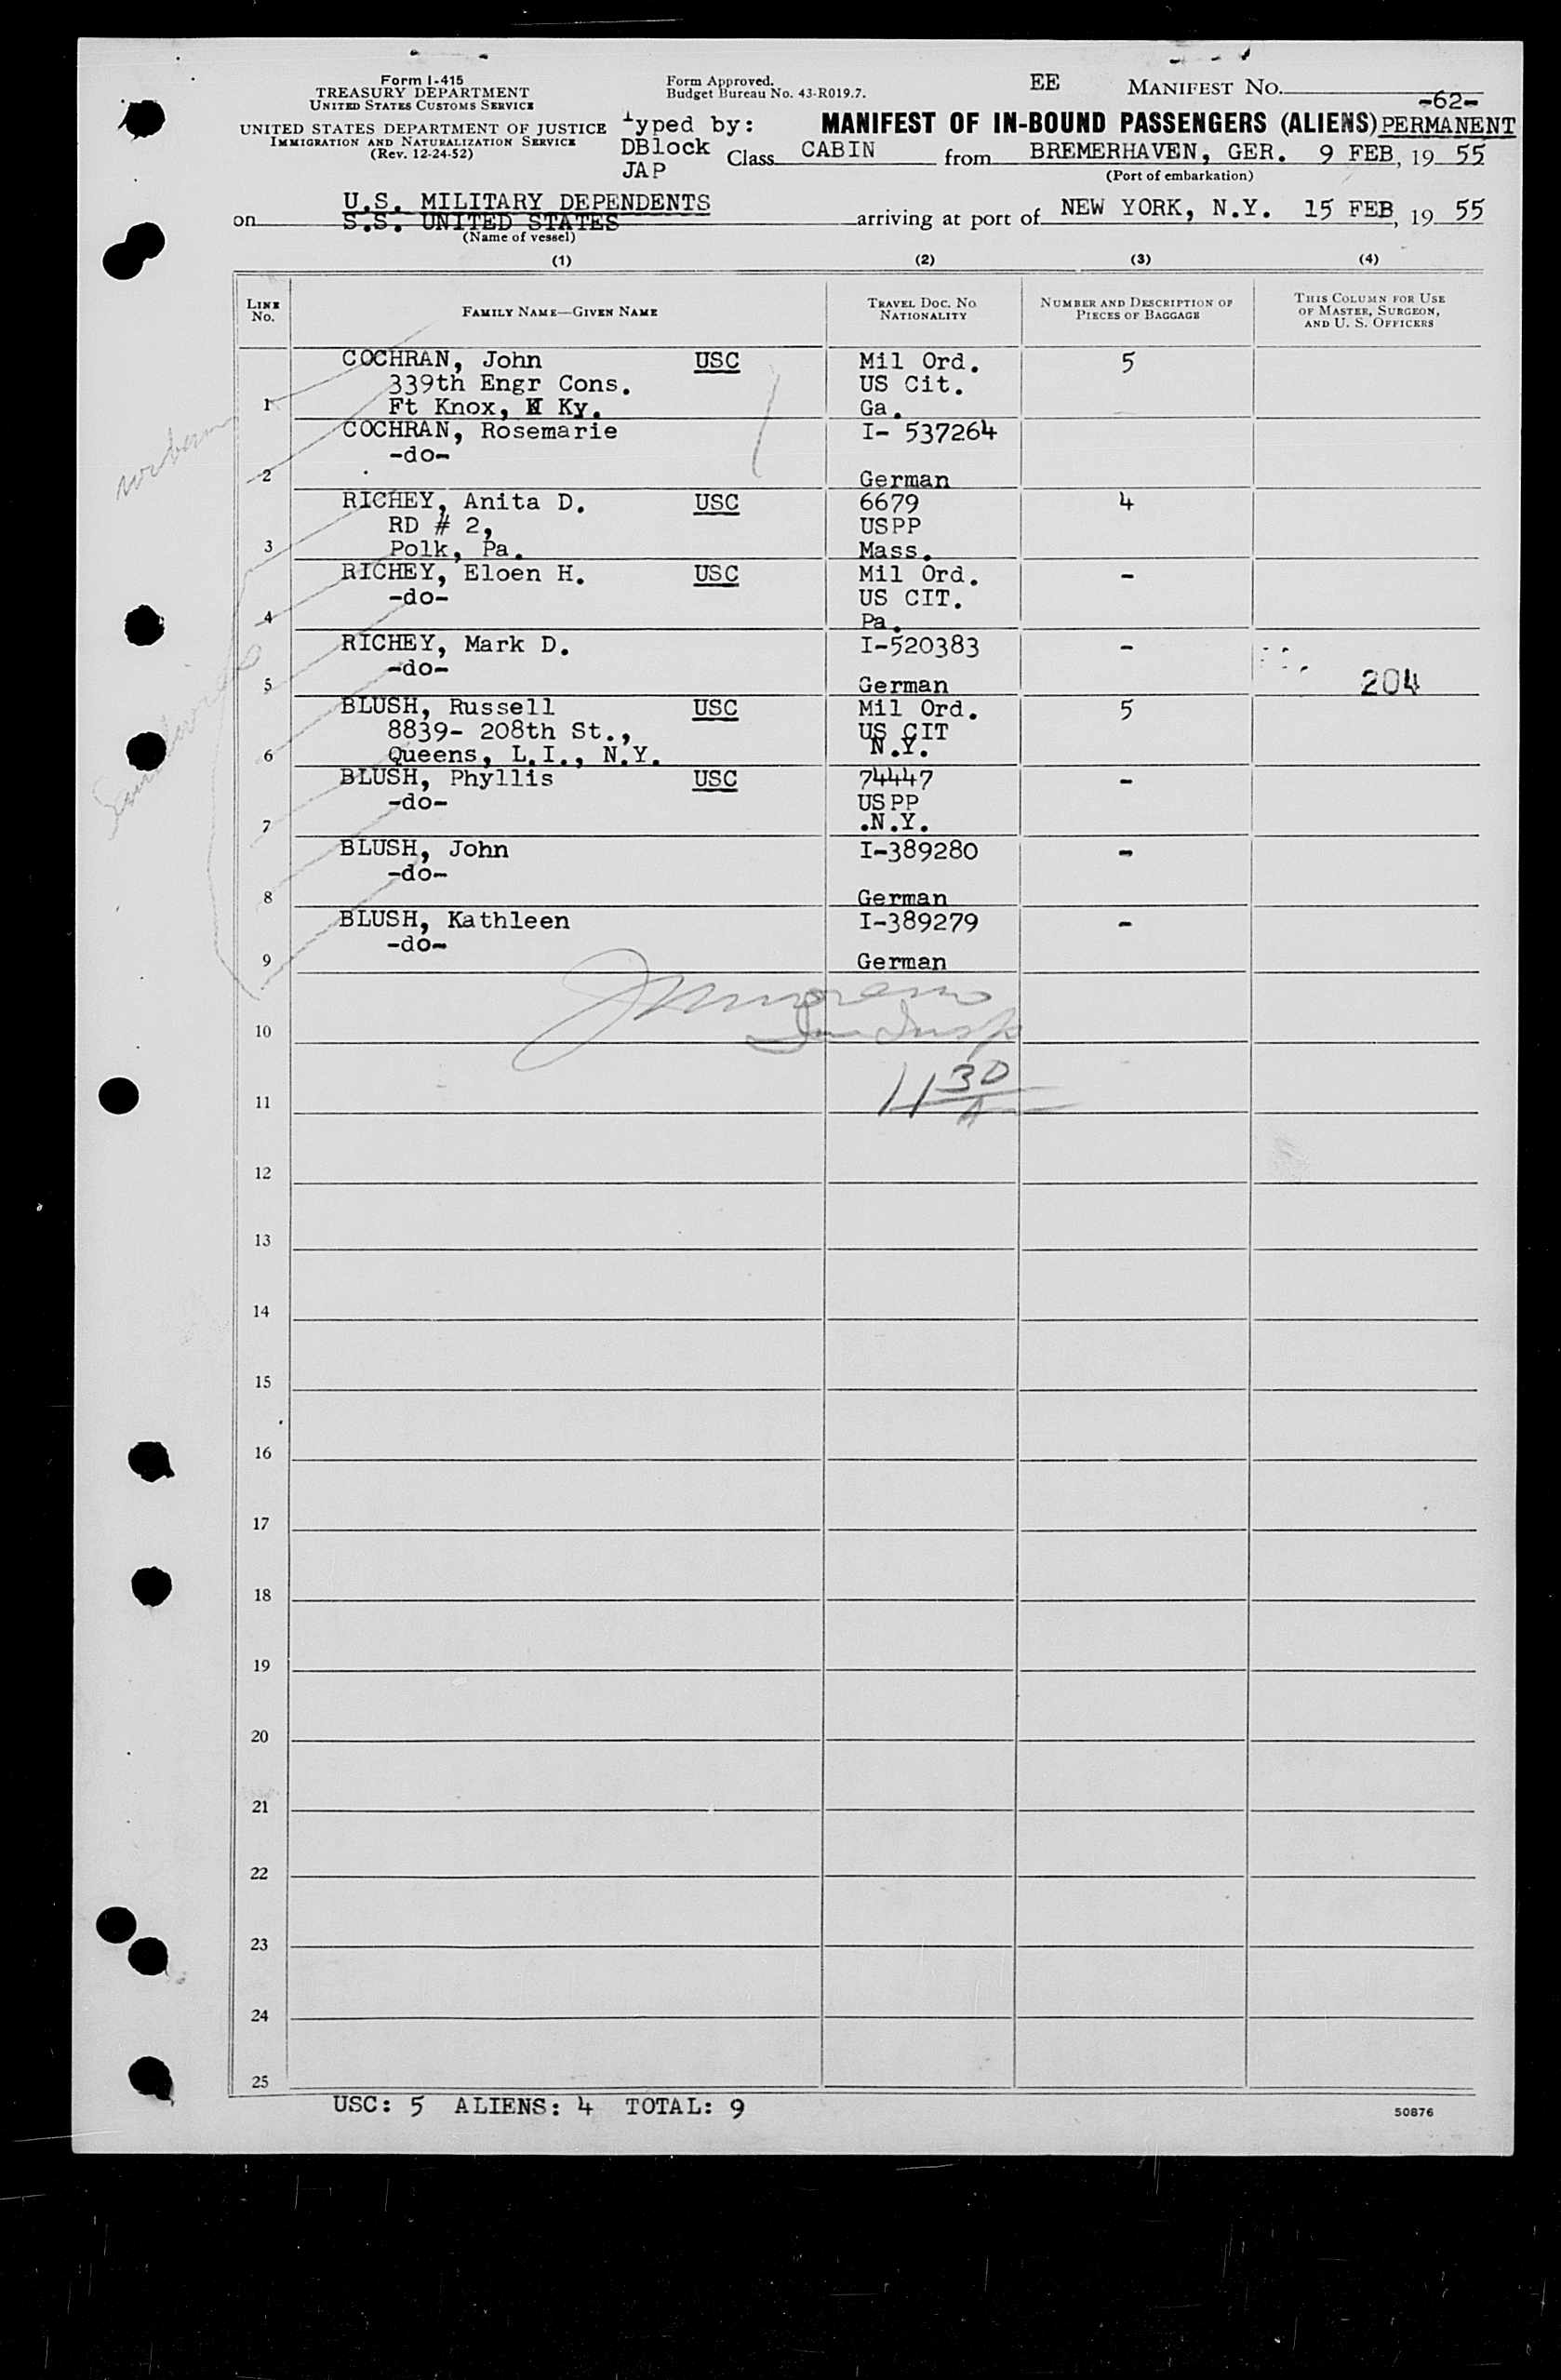 Form I-415
TREASURY DEPARTMENT
UNITED STATES CUSTOMS SERVICE
UNITED STATES DEPARTMENT OF JUSTICE
IMMIGRATION AND NATURALIZATION SERVICE
(Rev. 12-24-52)
Form Approved.
Budget Bureau No. 43-R019.7.
Typed by:
DBlock
JAP
EE MANIFEST No.
-62-
MANIFEST OF IN-BOUND PASSENGERS (ALIENS) PERMANENT
Class CABIN from BREMERHAVEN, GER. 9 FEB, 19 55
(Port of embarkation)
U.S. MILITARY DEPENDENTS
on S.S. UNITED STATES arriving at port of NEW YORK, N.Y. 15 FEB, 19 55
(Name of vessel)
(1) (2) (3) (4)
LINE No. FAMILY NAME—GIVEN NAME TRAVEL DOC. NO. NATIONALITY NUMBER AND DESCRIPTION OF PIECES OF BAGGAGE THIS COLUMN FOR USE OF MASTER, SURGEON, AND U. S. OFFICERS
COCHRAN, John USC Mil Ord. 5
339th Engr Cons. US Cit.
1 Ft Knox, Ky. Ga.
COCHRAN, Rosemarie I- 537264
-do-
2 German
RICHEY, Anita D. USC 6679 4
RD # 2, USPP
3 Polk, Pa. Mass.
RICHEY, Eloen H. USC Mil Ord. -
-do- US CIT.
4 Pa.
RICHEY, Mark D. I-520383 -
-do-
5 German 204
BLUSH, Russell USC Mil Ord. 5
8839- 208th St., US CIT
6 Queens, L.I., N.Y. N.Y.
BLUSH, Phyllis USC 74447 -
-do- USPP
7 .N.Y.
BLUSH, John I-389280 -
-do-
8 German
BLUSH, Kathleen I-389279 -
-do-
9 German
10
11 30
11
12
13
14
15
16
17
18
19
20
21
22
23
24
25
USC: 5 ALIENS: 4 TOTAL: 9
50876